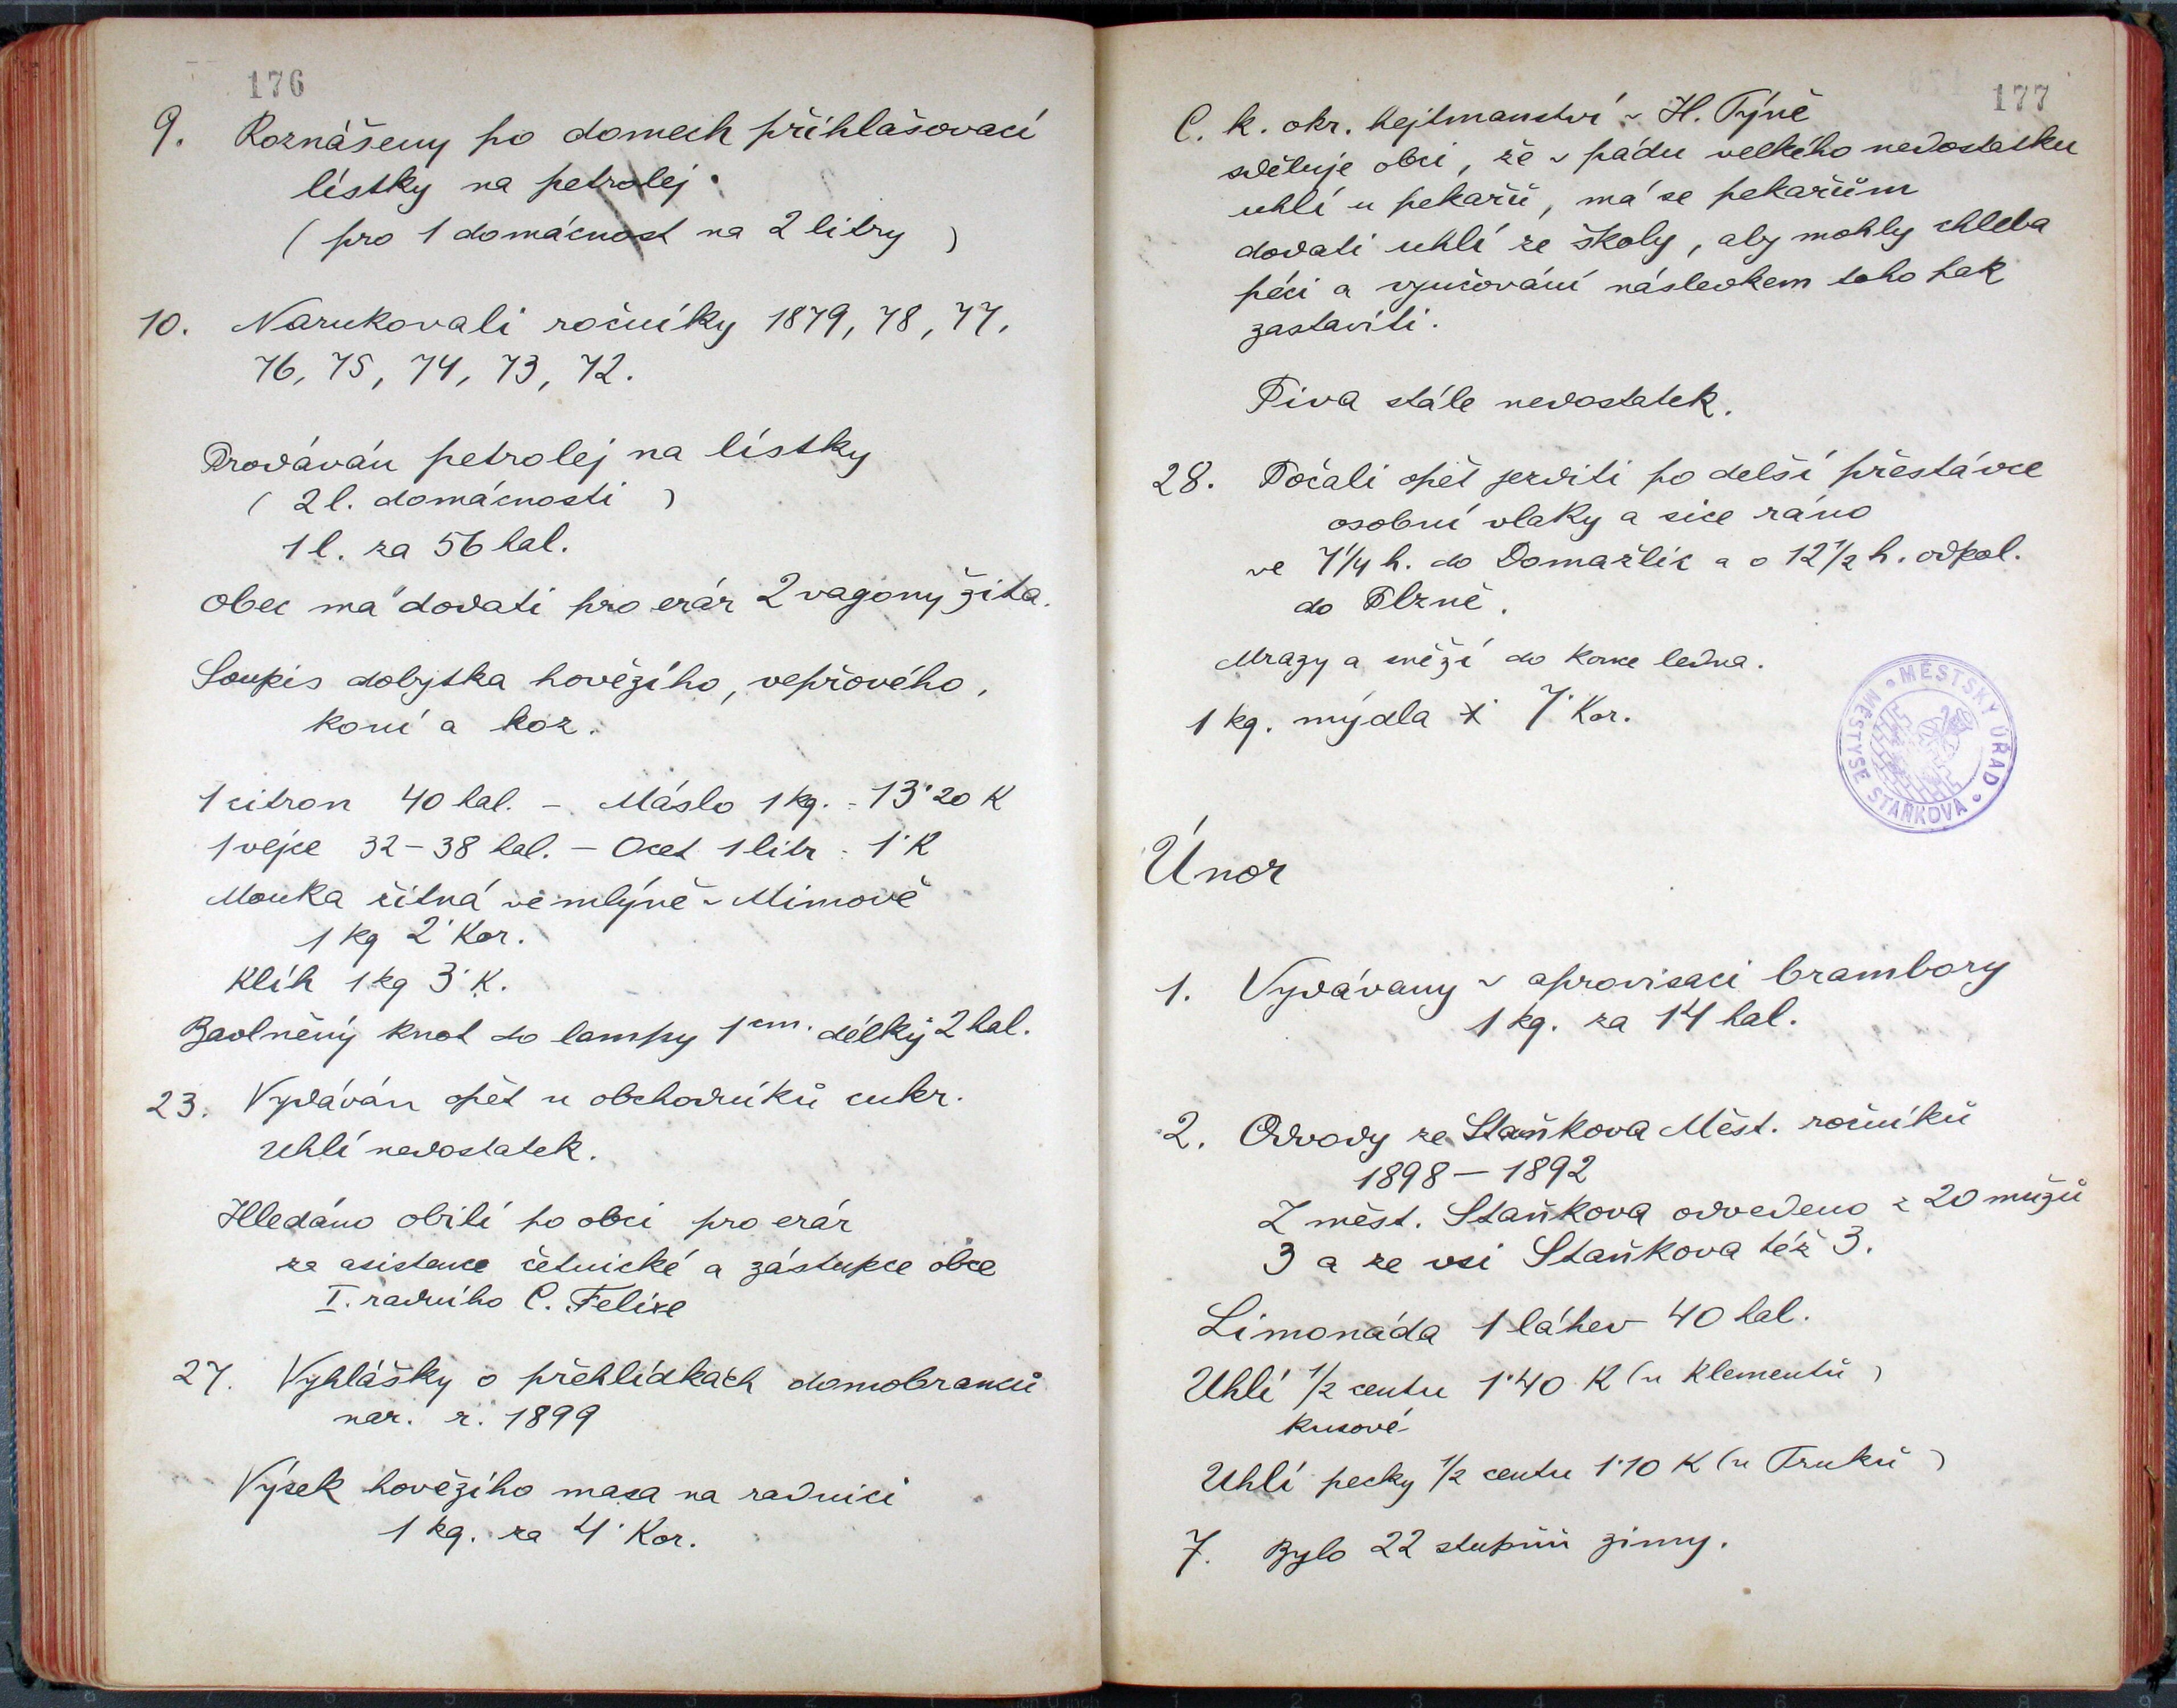 176
9. Roznášeny po domech přihlašovací
lístky na petrolej.
(pro 1 domácnost na 2 litry)
10. Narukovali ročníky 1879, 78, 77,
76, 75, 74, 73, 72.
Prodáván petrolej na lístky
(2 l. domácnosti)
1 l. za 56 hal.
Obec má dodati pro erár 2 vagony žita.
Soupis dobytka hovězího, vepřového,
koní a koz.
1 citron 40 hal. – Máslo 1 kg. = 13·20 K
1 vejce 32–38 hal. – Ocet 1 litr = 1·K
Mouka žitná ve mlýně v Mimově
1 kg 2· Kor.
Klíh 1 kg 3· K.
Bavlněný knot do lampy 1 cm. délky 2 hal.
23. Vydáván opět u obchodníků cukr.
Uhlí nedostatek.
Hledáno obilí po obci pro erár
za asistence četnické a zástupce obce
I. radního C. Felixe
27. Vyhlášky o přehlídkách domobranců
nar. r. 1899
Výsek hovězího masa na radnici
1 kg. za 4· Kor.
177
C. k. okr. hejtmanství v H. Týně
sděluje obci, že v pádu velkého nedostatku
uhlí u pekařů, má se pekařům
dodati uhlí ze školy, aby mohly chleba
péci a vyučování následkem toho pak
zastaviti.
Piva stále nedostatek.
28. Počali opět jezditi po delší přestávce
osobní vlaky a sice ráno
ve 7 1/4 h. do Domažlic a o 12 1/2 h. odpol.
do Plzně.
Mrazy a sněží do konce ledna.
1 kg. mýdla 7· Kor.
MĚSTSKÝ ÚŘAD
MĚSTYSE STAŇKOVA
Únor
1. Vydávany v aprovisaci brambory
1 kg. za 14 hal.
2. Odvody ze Staňkova Měst. ročníků
1898 – 1892
Z měst. Staňkova odvedeno z 20 mužů
3 a ze vsi Staňkova též 3.
Limonáda 1 láhev 40 hal.
Uhlí 1/2 centu 1·40 K (u Klementů)
kusové
Uhlí pecky 1/2 centu 1·10 K (u Truků)
7. Bylo 22 stupňů zimy.